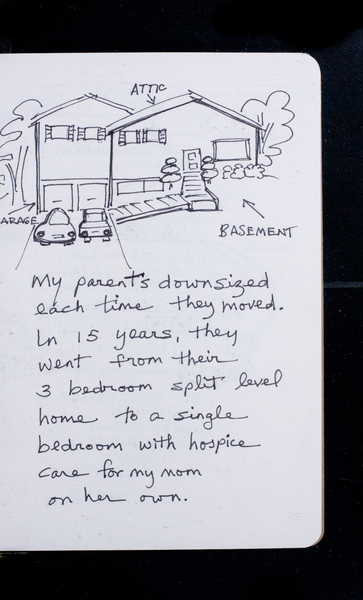 ATTIC
ARAGE
BASEMENT
My parent's downsized
each time they moved.
In 15 years, they
went from their
3 bedroom split level
home to a single
bedroom with hospice
care for my mom
on her own.